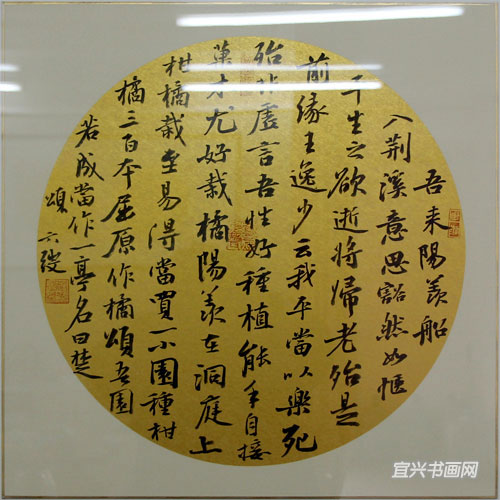 吾来陽羨船
入荆溪意思豁然如愜
平生之欲逝将歸老殆是
前緣王逸少云我卒當以樂死
殆非虛言吾性好種植能手自接
菓木尤好栽橘陽羨在洞庭上
柑橘栽至易得當買一小園種柑
橘三百本屈原作橘頌吾園
若成當作一亭名曰楚
頌
宜兴书画网